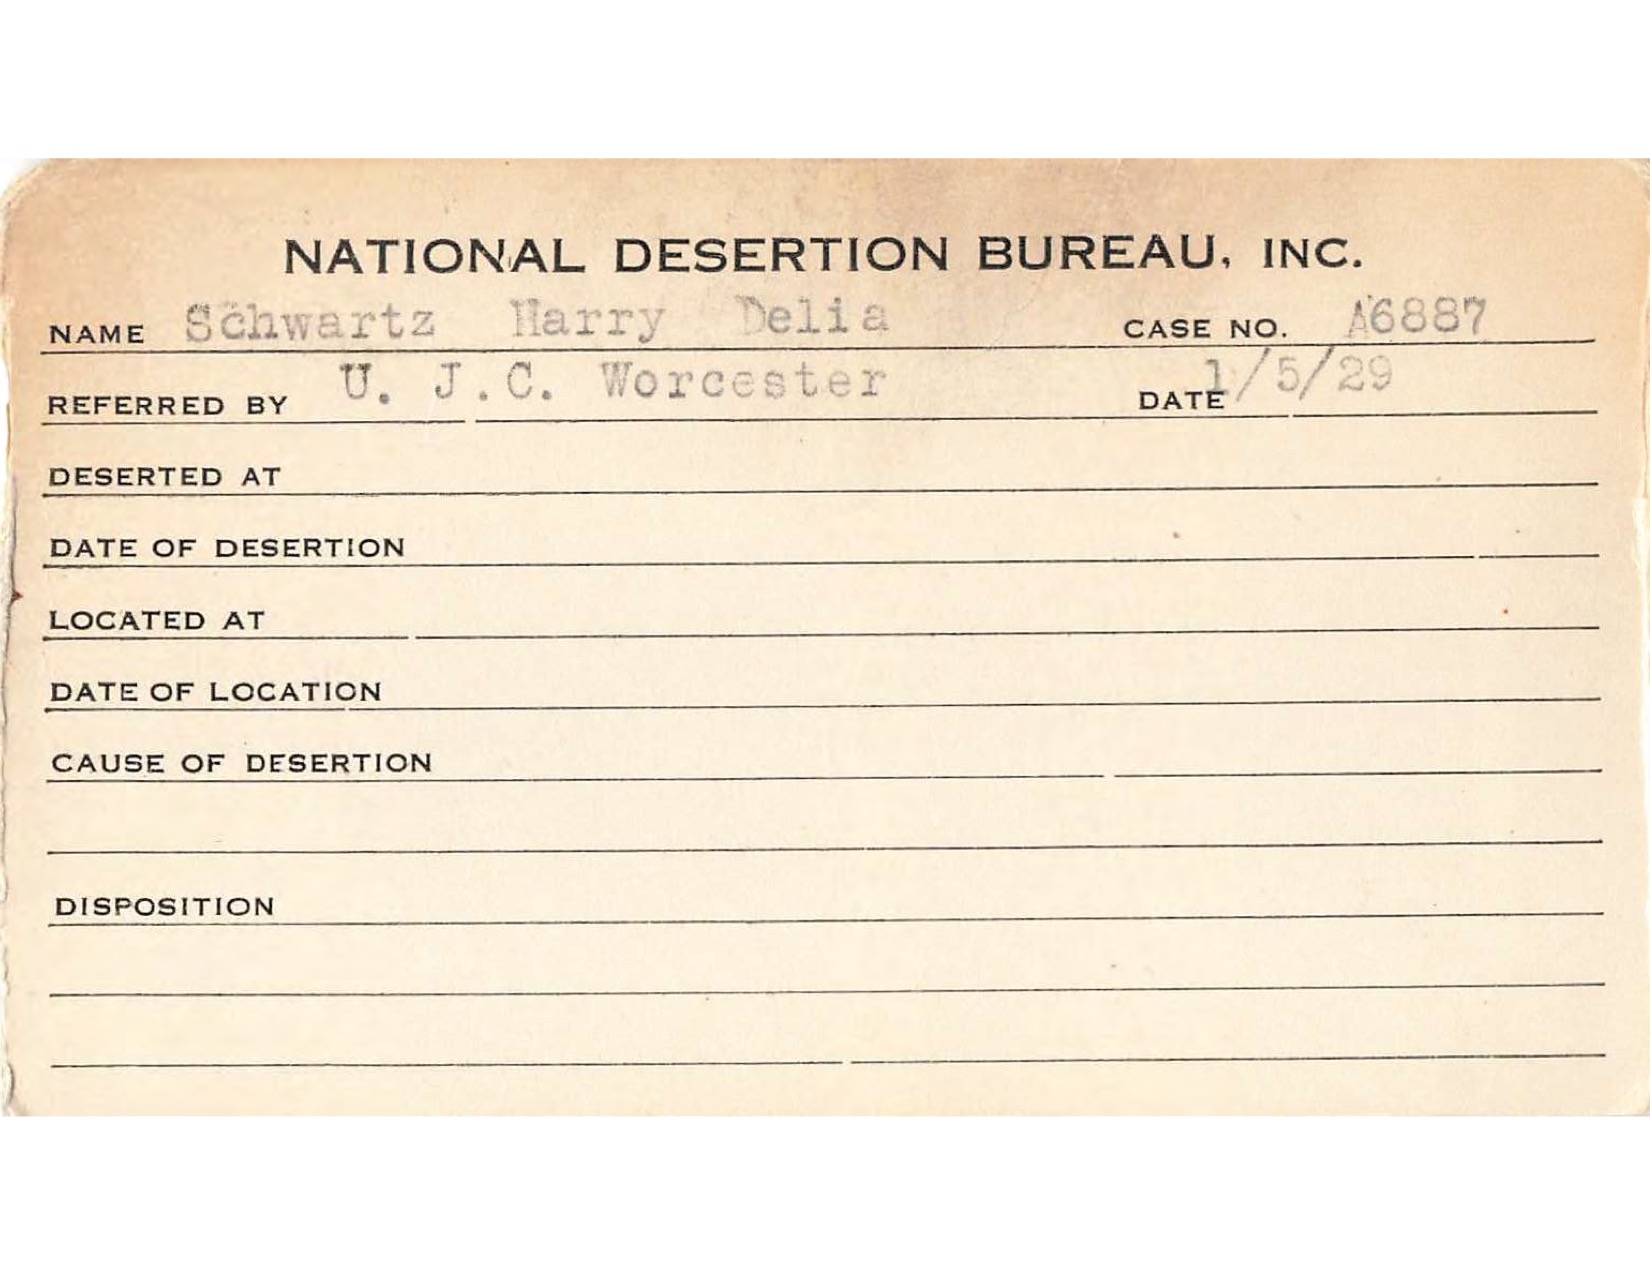 NATIONAL DESERTION BUREAU, INC.
NAME Schwartz Harry Delia CASE NO. A6887
REFERRED BY U. J.C. Worcester DATE 1/5/29
DESERTED AT
DATE OF DESERTION
LOCATED AT
DATE OF LOCATION
CAUSE OF DESERTION
DISPOSITION